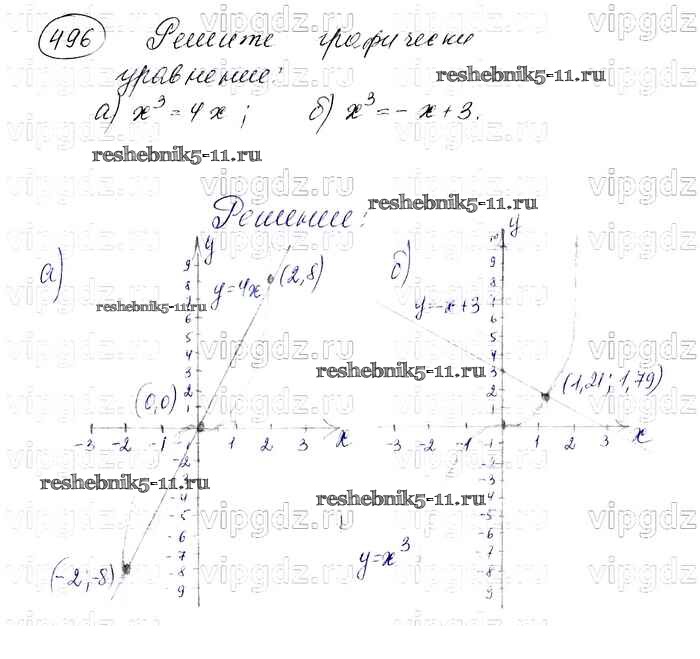 496 Решите графически
уравнение:
а) x³ = 4x; б) x³ = - x + 3.
Решение:
а)
y
y=4x
(2,8)
(0,0)
(-2;-8)
-3 -2 -1 1 2 3 x
9
8
7
6
5
4
3
2
1
-2
-3
-4
-5
-6
-7
-8
-9
б)
y
y=-x+3
(1,21; 1,79)
-3 -2 -1 1 2 3 x
9
8
7
6
5
4
3
2
1
-1
-2
-3
-4
-5
-6
-7
-8
-9
y=x³
reshebnik5-11.ru
reshebnik5-11.ru
reshebnik5-11.ru
reshebnik5-11.ru
reshebnik5-11.ru
reshebnik5-11.ru
reshebnik5-11.ru
vipgdz.ru